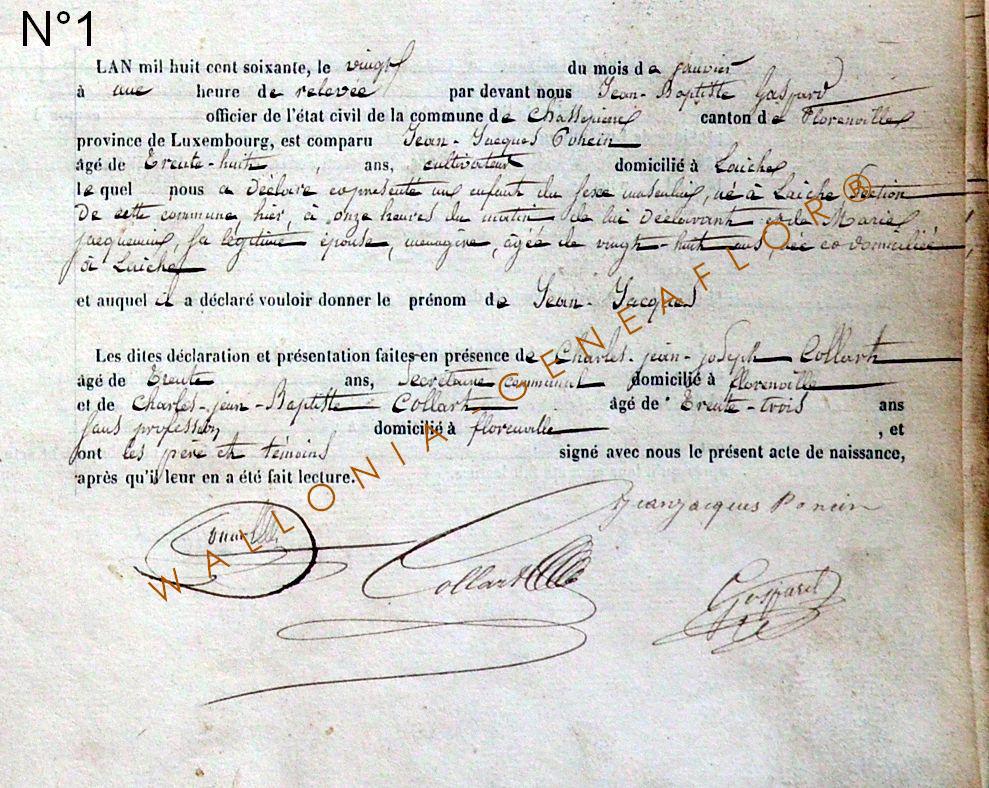 N°1
LAN mil huit cent soixante, le vingt du mois de janvier
à une heure de relevée par devant nous Jean-Baptiste Gaspard
officier de l'état civil de la commune de Chassepierre canton de Florenville
province de Luxembourg, est comparu Jean-Jacques Poncin
âgé de trente-huit ans, cultivateur domicilié à Laiche
lequel nous a déclaré et présenté un enfant du sexe masculin, né à Laiche section
de cette commune, hier, à onze heures du matin de lui déclarant et de Marie
Jacquemin, sa légitime épouse, ménagère, âgée de vingt-huit ans, née et domiciliée
à Laiche
et auquel il a déclaré vouloir donner le prénom de Jean-Jacques
Les dites déclaration et présentation faites en présence de Charles-jean-joseph Collart
âgé de trente ans, Secrétaire communal domicilié à florenville
et de Charles-jean-Baptiste Collart âgé de trente-trois ans
sans profession domicilié à florenville , et
ont les père et témoins signé avec nous le présent acte de naissance,
après qu'il leur en a été fait lecture.
Jeanjacques Poncin
Collart
Gaspard
WALLONIA GENEAFLOR®